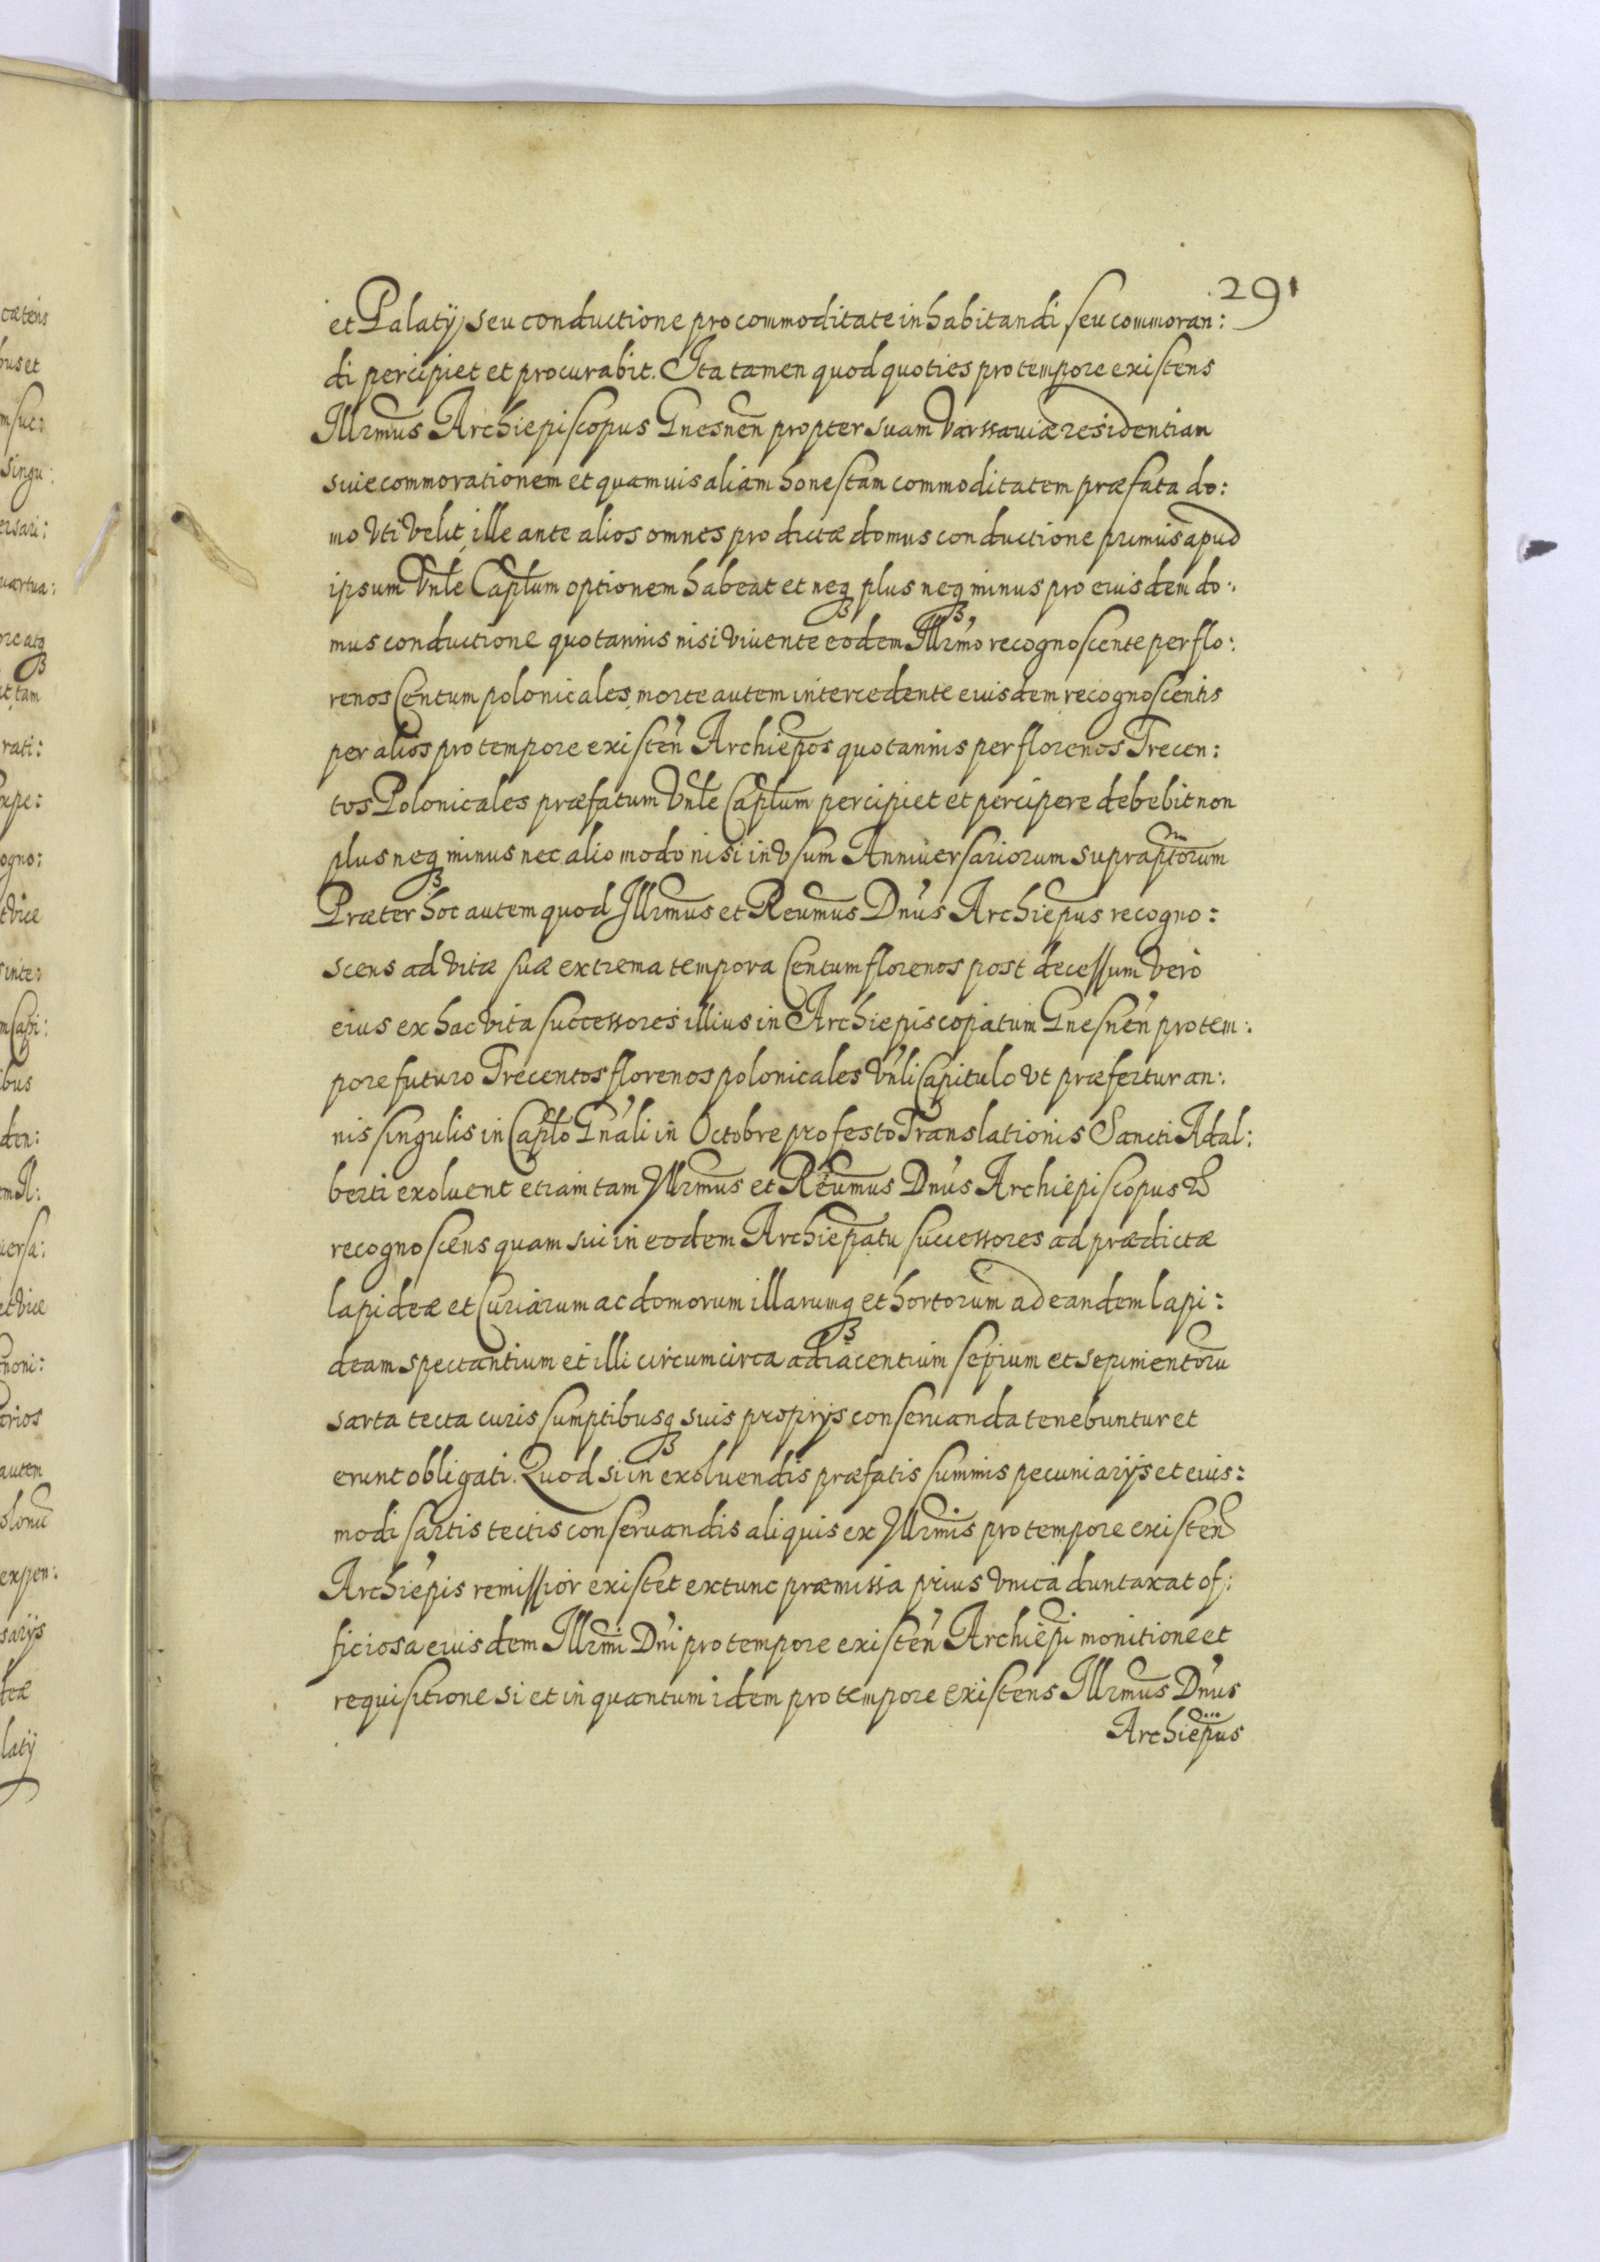 291
et Palatÿ, seu conductione pro commoditate inhabitandi seu commoran:
di percipiet et procurabit. Ita tamen quod quoties pro tempore existens
Illrmus Archiepiscopus Gnesnen propter suam Varssaviæ residentiam
suie commorationem et quamuis aliam honestam commoditatem præfata do:
mo Vti velit, ille ante alios omnes pro dictæ domus conductione primus apud
ipsum Vnle Caplum optionem habeat et neq3 plus neq3 minus pro eiusdem do:
mus conductione quotannis nisi vivente eodem Illrmo recognoscente per flo:
renos Centum polonicales, morte autem intercedente eiusdem recognoscentis
per alios pro tempore existen Archiepos quotannis per florenos Trecen:
tos Polonicales præfatum Vnle Caplum percipiet et percipere debebit non
plus neq3 minus nec alio modo nisi in Vsum Anniversariorum supraptorum
Præter hoc autem quod Illrmus et Reumus Dnus Archiepus recogno:
scens ad vitæ suæ extrema tempora Centum florenos post decessum verò
eius ex hac vita successores illius in Archiepiscopatum Gnesnen pro tem:
pore futuro Trecentos florenos polonicales Vnli Capitulo Vt præfertur an:
nis singulis in Caplo Gnali in Octobre pro festo Translationis Sancti Adal:
berti exoluent etiam tam Illrmus et Reumus Dnus Archiepiscopus
recognoscens quam sui in eodem Archiepatu successores ad prædictæ
lapideæ et Curiarum ac domorum illarumq3 et hortorum ad eandem lapi:
deam spectantium et illi circumcirca adiacentium sepium et sepimentoru
sarta tecta curis sumptibusq3 suis proprijs conseruanda tenebuntur et
erunt obligati. Quod si in exoluendis præfatis summis pecuniarijs et eius:
modi sartis tectis conseruandis aliquis ex Illrmis pro tempore existen
Archiepis remissior existet extunc præmissa prius Vnica duntaxat of:
ficiosa eiusdem Illrmi Dni pro tempore existen Archiepi monitione et
requisitione si et in quantum idem pro tempore existens Illrmus Dnus
Archiepus